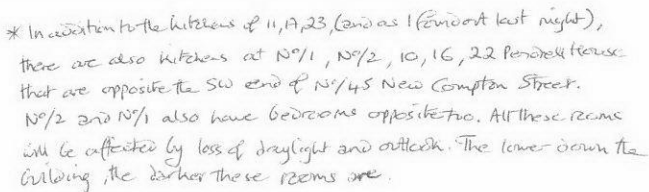 * In addition to the kitchens of 11, 17, 23, (and as I found out last night),
there are also kitchens at No/1, No/2, 10, 16, 22 Pendrell House
that are opposite the SW end of No/45 New Compton Street.
No/2 and No/1 also have bedrooms opposite too. All these rooms
will be affected by loss of daylight and outlook. The lower down the
building, the darker these rooms are.